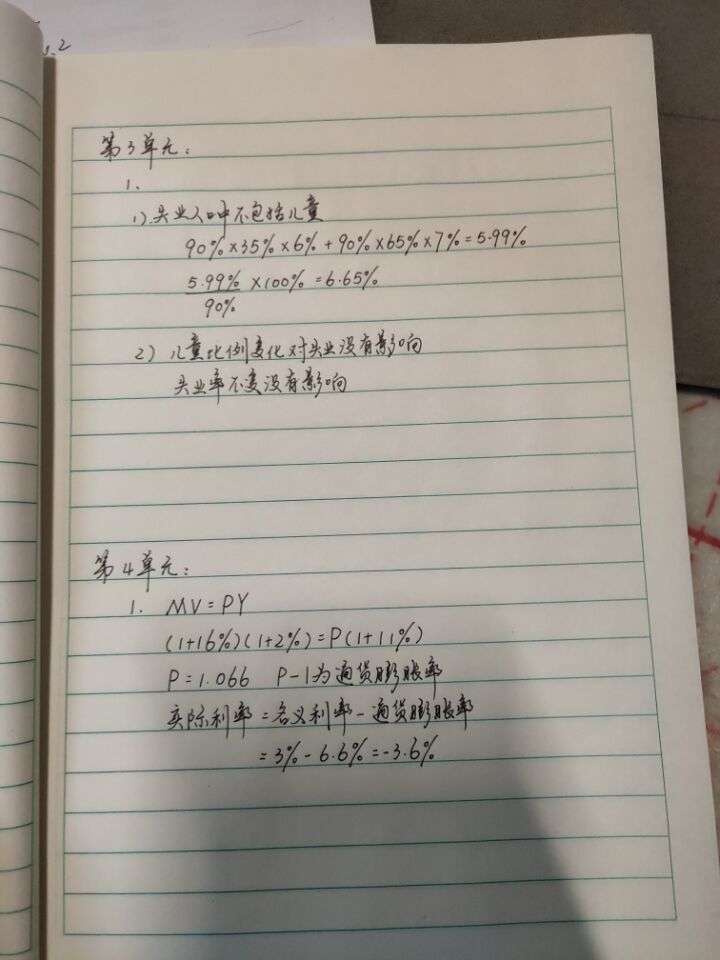 第3单元:
1.
1).失业人口中不包括儿童
90%×35%×6%+90%×65%×7%=5.99%
5.99%
90%
×100%=6.65%
2) 儿童比例变化对失业没有影响
失业率不变没有影响
第4单元:
1. MV=PY
(1+16%)(1+2%)=P(1+11%)
P=1.066 P-1为通货膨胀率
实际利率=名义利率-通货膨胀率
=3%-6.6%=-3.6%